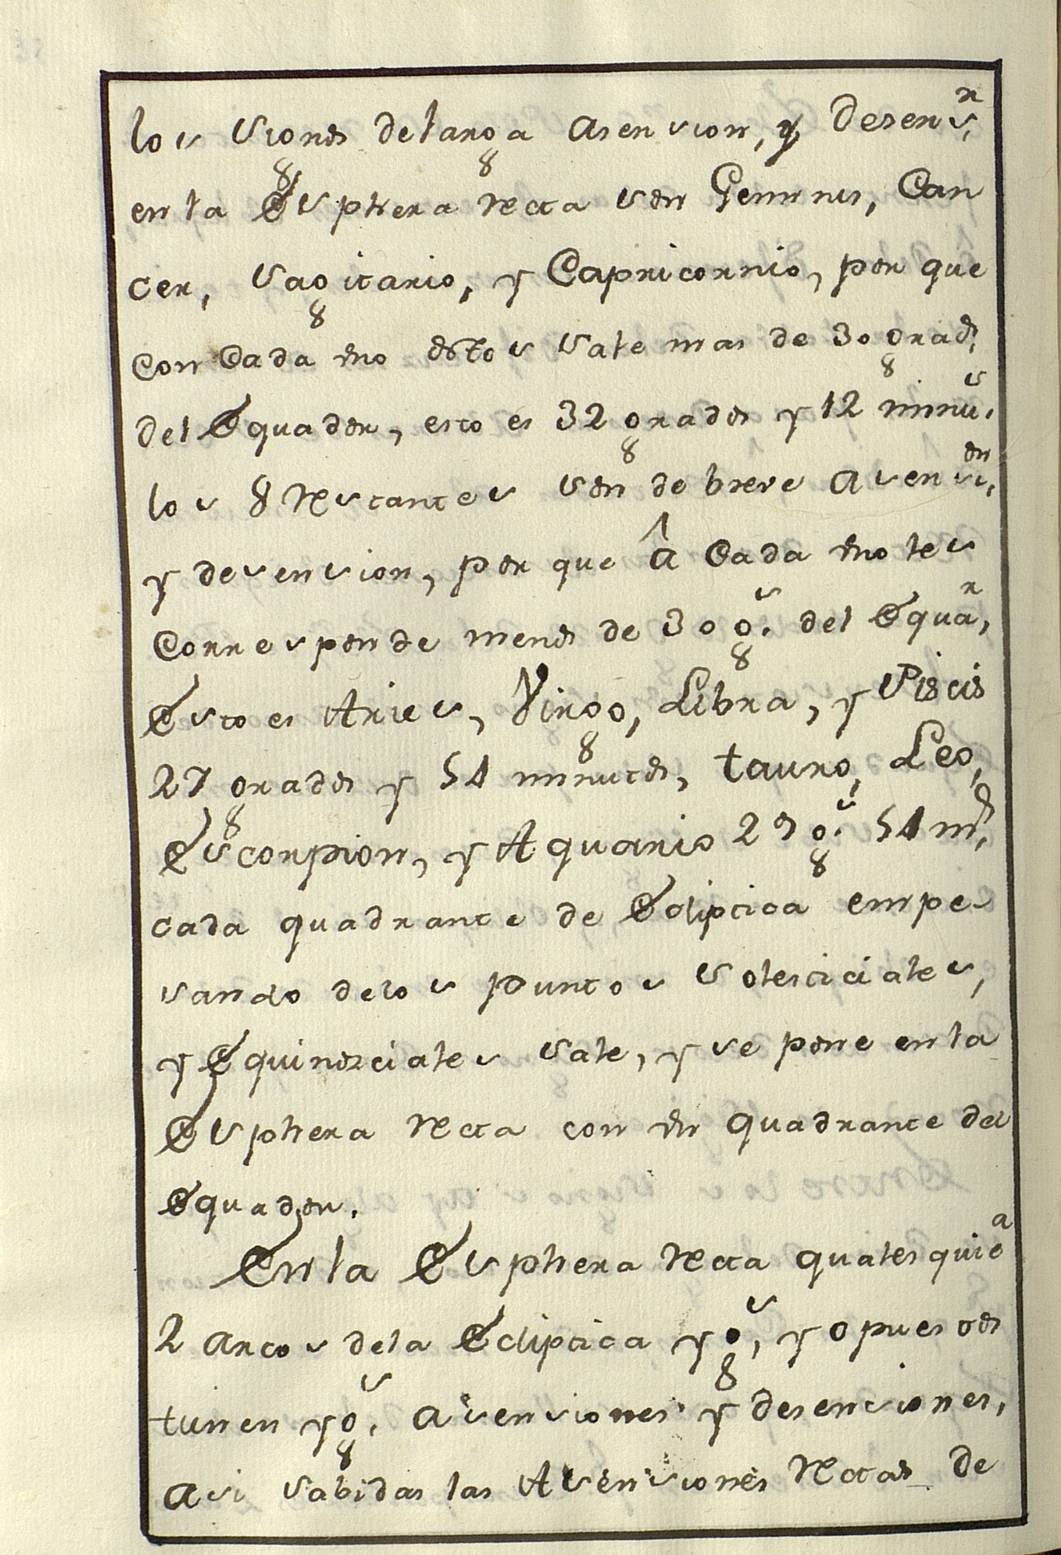 los signos de larga asension, y desen.n
en la Esphera recta son Geminis, Can
cer, Sagitario, y Capricornio, por que
con Cada uno destos sale mas de 30 grad.s
del Equador, esto es 32 grados y 12 minu.s
los 8 restantes son de breve asensi.on
y desension, por que â Cada uno les
Corresponde menos de 30 g.s del Equa.r
Esto es Aries, Virgo, Libra, y Piscis
27 grados y 54 minutos, tauro, Leo,
Escorpion, y Aquario 29 g.s 54 m.s
cada quadrante de Ecliptica empe-
sando delos Puntos Solesticiales,
y Equinocciales sale, y se pone en la
Esphera recta con un quadrante del
Equador.
En la Esphera recta qualesquie.a
2 arcos dela Ecliptica yg.s, y opuestos
tienen yg.s asensiones y desenciones,
asi sabidas las Asensiones rectas de